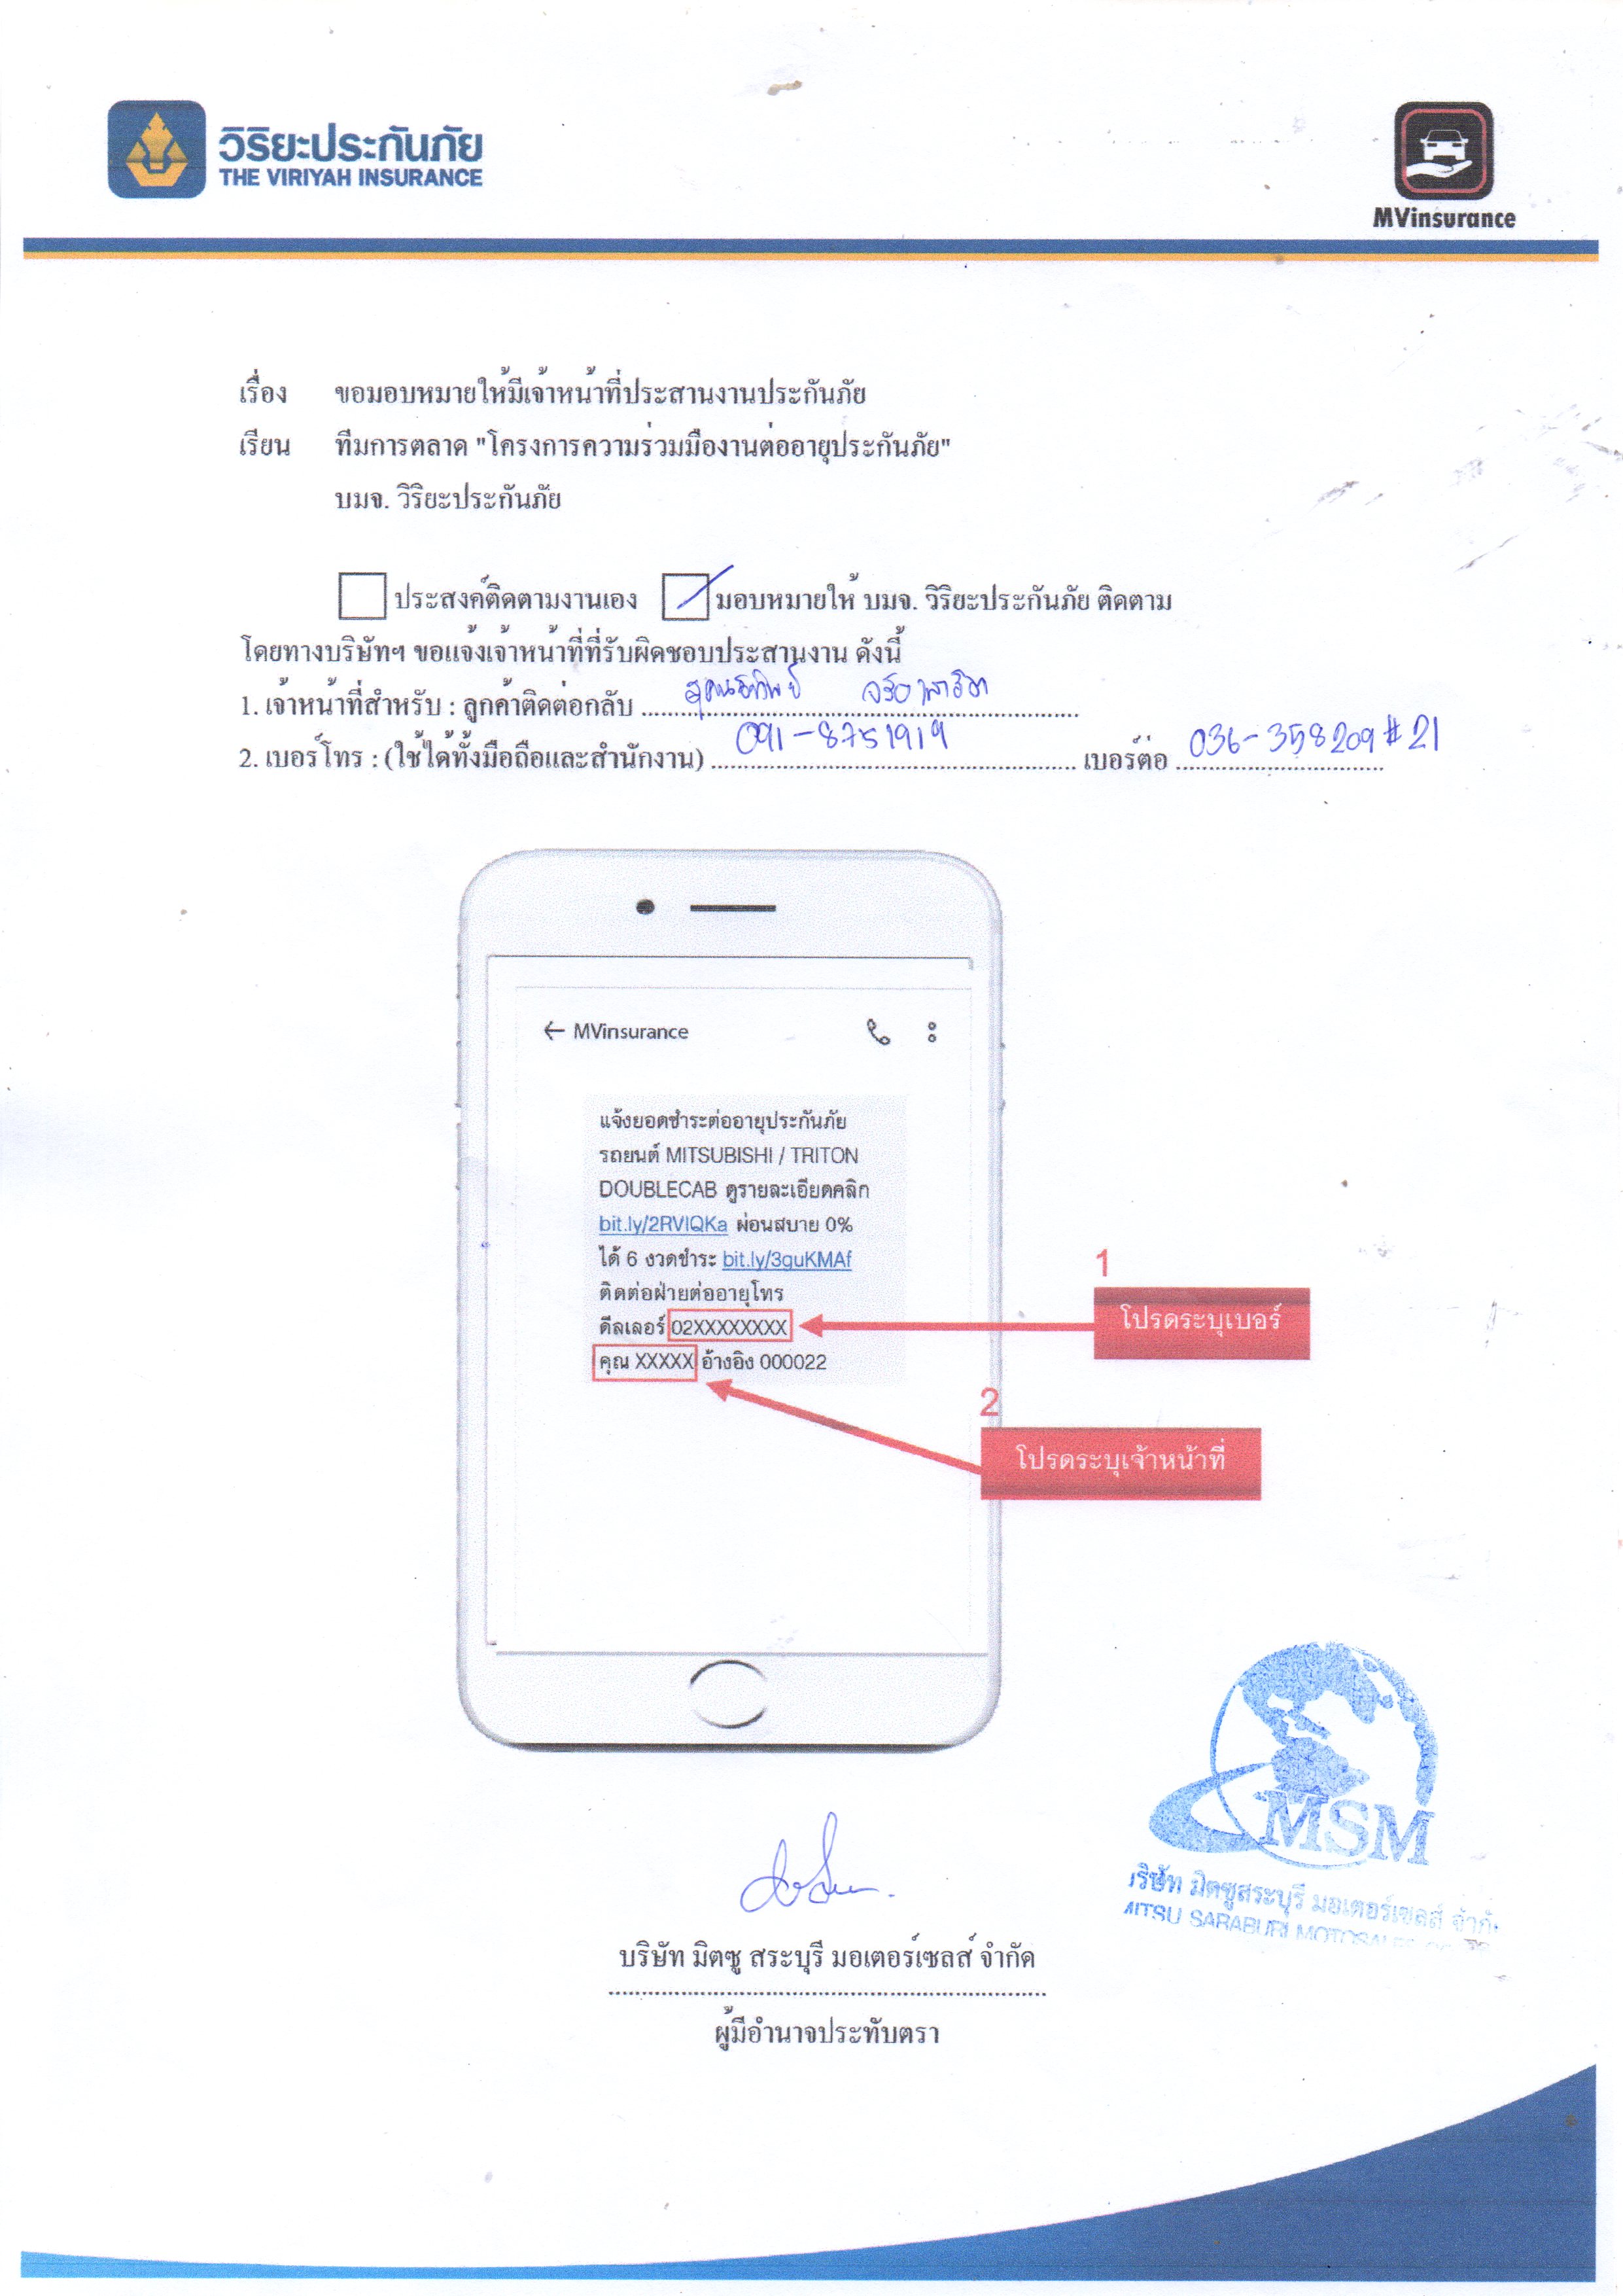 วิริยะประกันภัย
THE VIRIYAH INSURANCE
MVinsurance
เรื่อง ขอมอบหมายให้มีเจ้าหน้าที่ประสานงานประกันภัย
เรียน ทีมการตลาด "โครงการความร่วมมืองานต่ออายุประกันภัย"
บมจ. วิริยะประกันภัย
ประสงค์ติดตามงานเอง มอบหมายให้ บมจ. วิริยะประกันภัย ติดตาม
โดยทางบริษัทฯ ขอแจ้งเจ้าหน้าที่ที่รับผิดชอบประสานงาน ดังนี้
1. เจ้าหน้าที่สำหรับ : ลูกค้าติดต่อกลับ
2. เบอร์โทร : (ใช้ได้ทั้งมือถือและสำนักงาน) 091-8751919 เบอร์ต่อ 036-358209#21
← MVinsurance
แจ้งยอดชำระต่ออายุประกันภัย
รถยนต์ MITSUBISHI / TRITON
DOUBLECAB ดูรายละเอียดคลิก
bit.ly/2RVIQKa ผ่อนสบาย 0%
ได้ 6 งวดชำระ bit.ly/3guKMAf
ติดต่อฝ่ายต่ออายุโทร
ดีลเลอร์ 02XXXXXXXX
คุณ XXXXX อ้างอิง 000022
1
โปรดระบุเบอร์
2
โปรดระบุเจ้าหน้าที่
MSM
มิตซูสระบุรี มอเตอร์เซลส์
SARABURI
บริษัท มิตซู สระบุรี มอเตอร์เซลส์ จำกัด
ผู้มีอำนาจประทับตรา